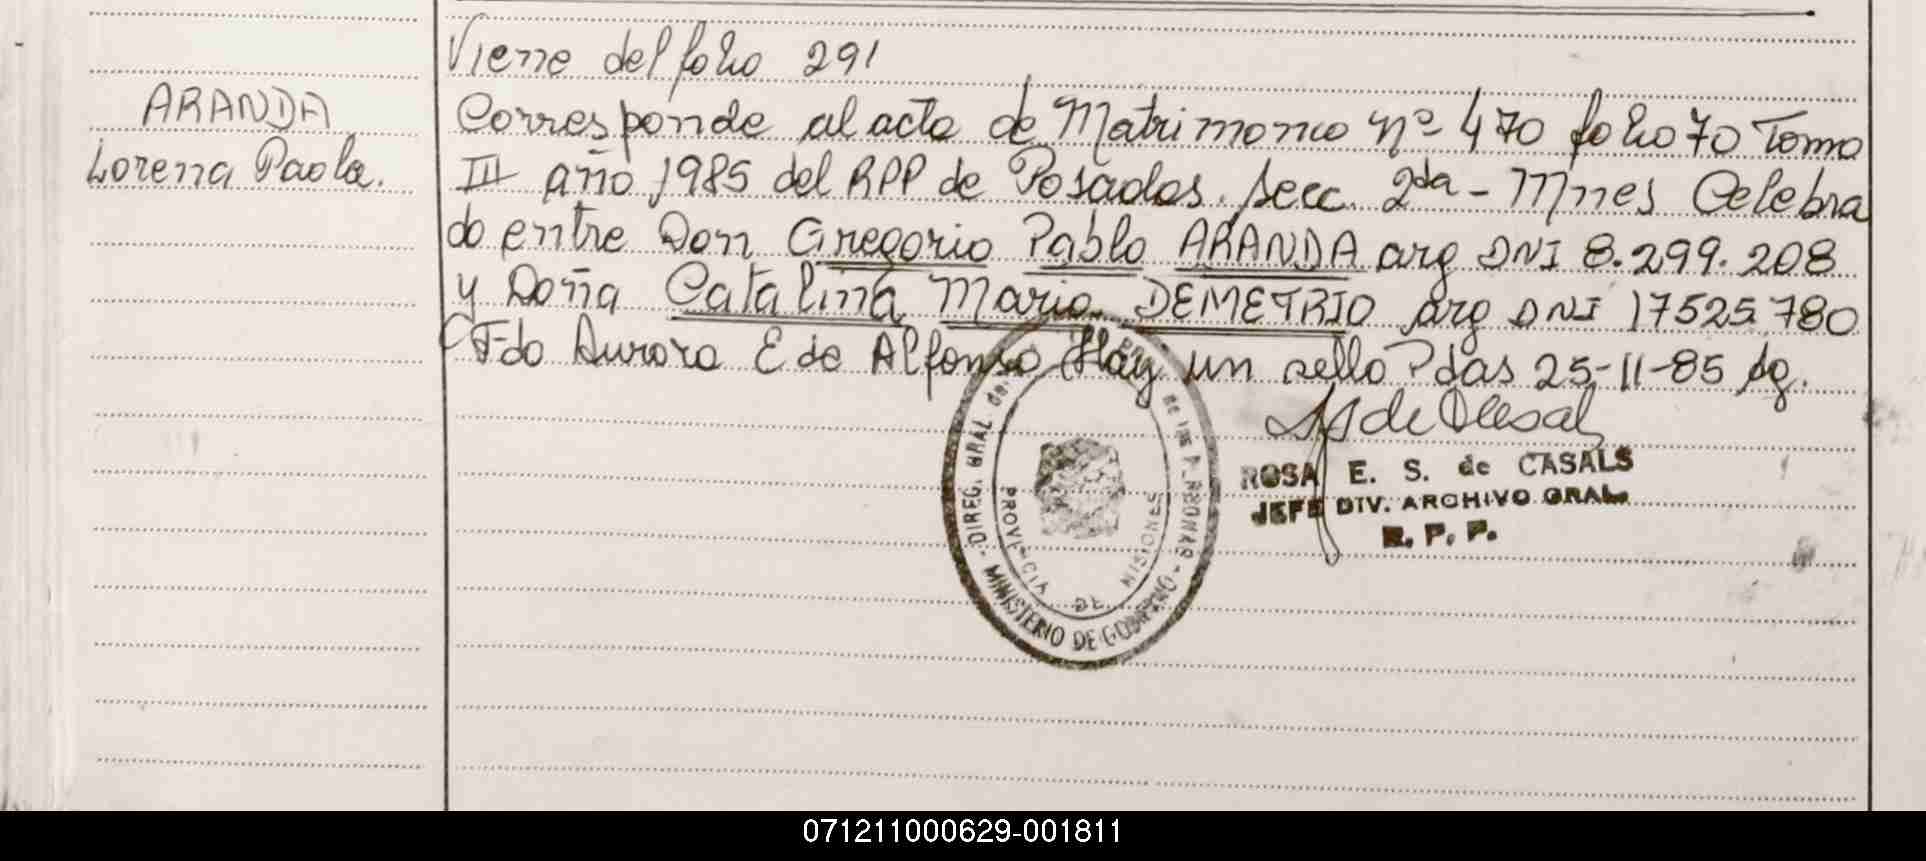 Viene del folio 291
ARANDA
Lorena Paola.
Corresponde al acta de Matrimonio nº 470 folio 70 Tomo
III año 1985 del RPP de Posadas. Secc. 2da - Mnes Celebra
do entre Don Gregorio Pablo ARANDA arg DNI 8.299.208
y Doña Catalina Maria DEMETRIO arg DNI 17525.780
Fdo Aurora E de Alfonso Hay un sello Pdas 25-11-85
ROSA E. S. de CASALS
JEFE DIV. ARCHIVO GRAL.
R. P. P.
DIREG. GRAL. del
de las
MINISTERIO DE GOBIERNO
PROVINCIA DE MISIONES
071211000629-001811